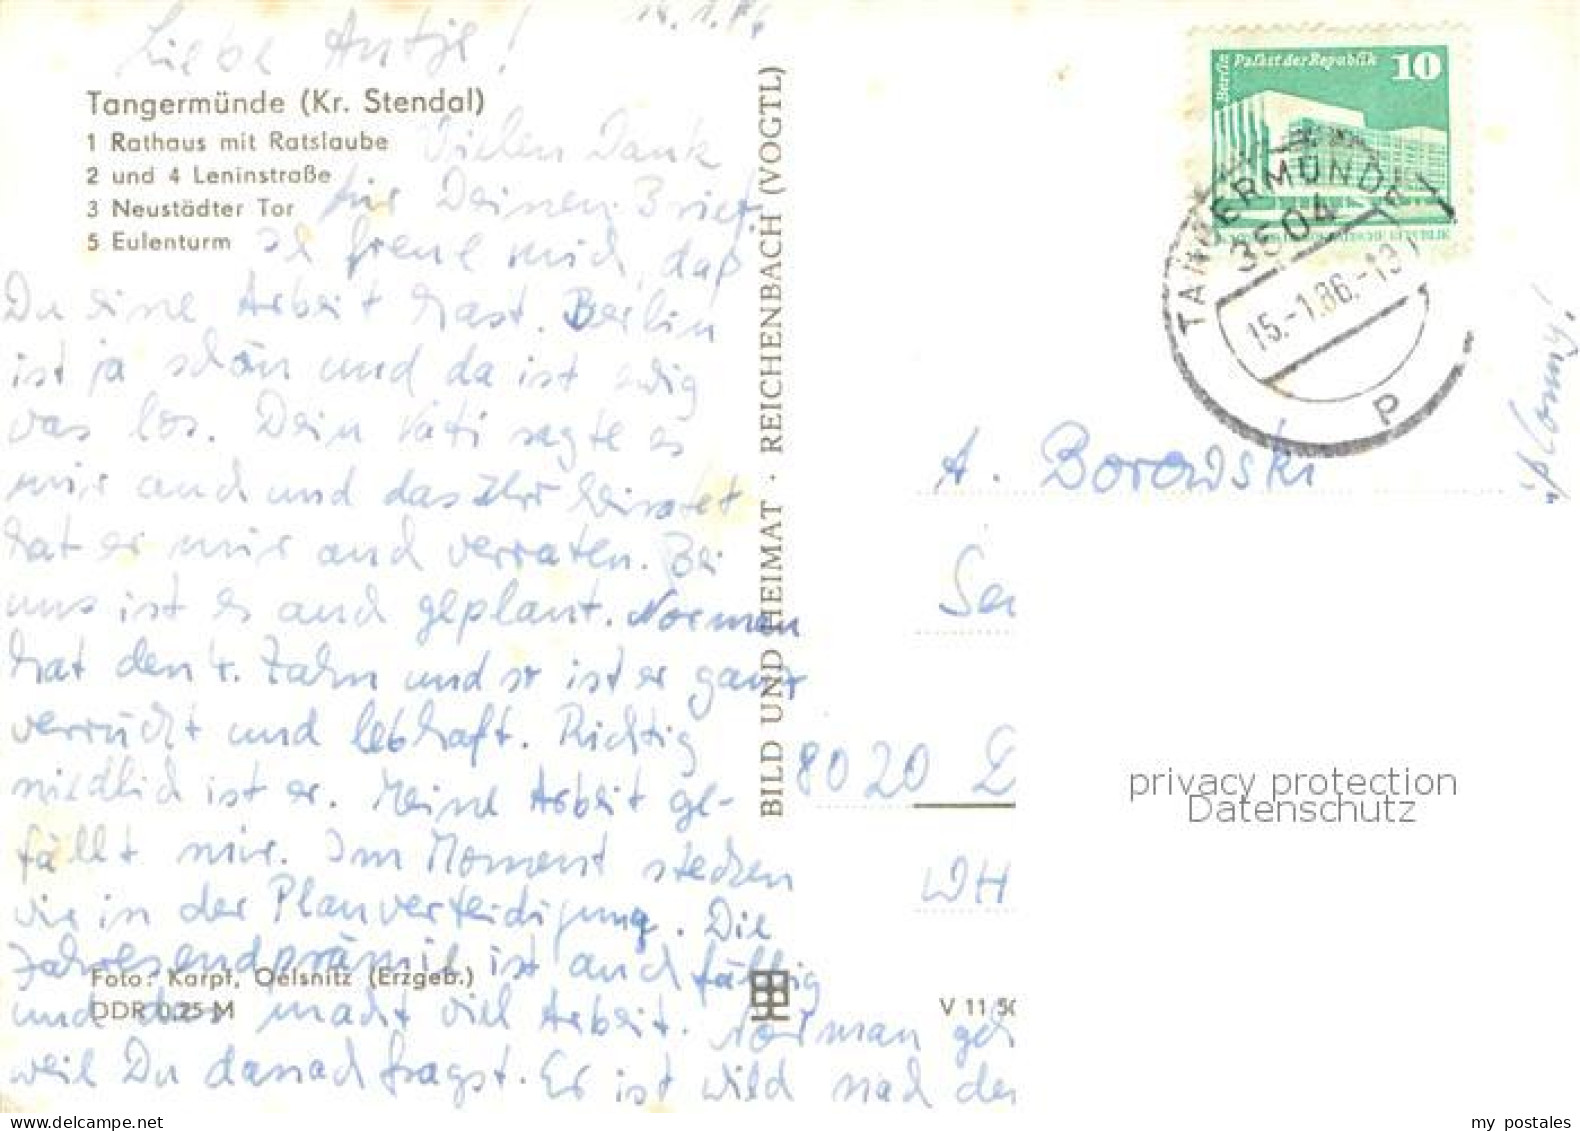 14. 1. 86
Liebe Antje!
Tangermünde (Kr. Stendal)
1 Rathaus mit Ratslaube
2 und 4 Leninstraße
3 Neustädter Tor
5 Eulenturm
Vielen Dank
für Deinen Brief.
Ich freue mich, daß
Du eine Arbeit hast. Berlin
ist ja schön und da ist ewig
was los. Dein Vati sagte es
mir auch und das Ihr heiratet
hat er mir auch verraten. Bei
uns ist es auch geplant. Norman
hat den 4. Zahn und so ist er ganz
verrückt und lebhaft. Richtig
niedlich ist er. Meine Arbeit ge-
fällt mir. Im Moment stecken
wir in der Planverteidigung. Die
Jahresendprämie ist auch fällig
und das macht viel Arbeit. Norman geh
weil Du danach fragst. Er ist wild nach de
Foto: Karpf, Oelsnitz (Erzgeb.)
DDR 0,25 M
BILD UND HEIMAT · REICHENBACH (VOGTL)
V 11 50
Berlin Palast der Republik 10
DEUTSCHE DEMOKRATISCHE REPUBLIK
TANGERMÜNDE 1
3504
15.-1.86.-13
P
A. Borowski
8020 D
WH
privacy protection
Datenschutz
my postales